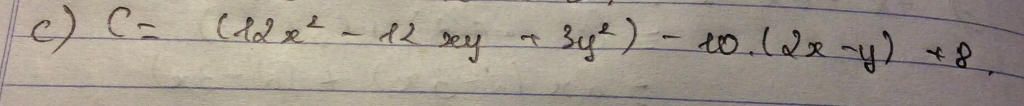 c) C = (12x² - 12xy + 3y²) - 10.(2x - y) + 8.